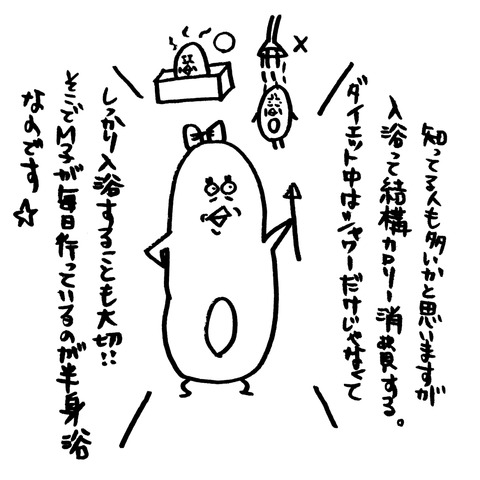 知ってる人も多いかと思いますが
入浴って結構カロリー消費する。
ダイエット中はシャワーだけじゃなくて
しっかり入浴することも大切!!
そこでM子が毎日行っているのが半身浴
なのです☆